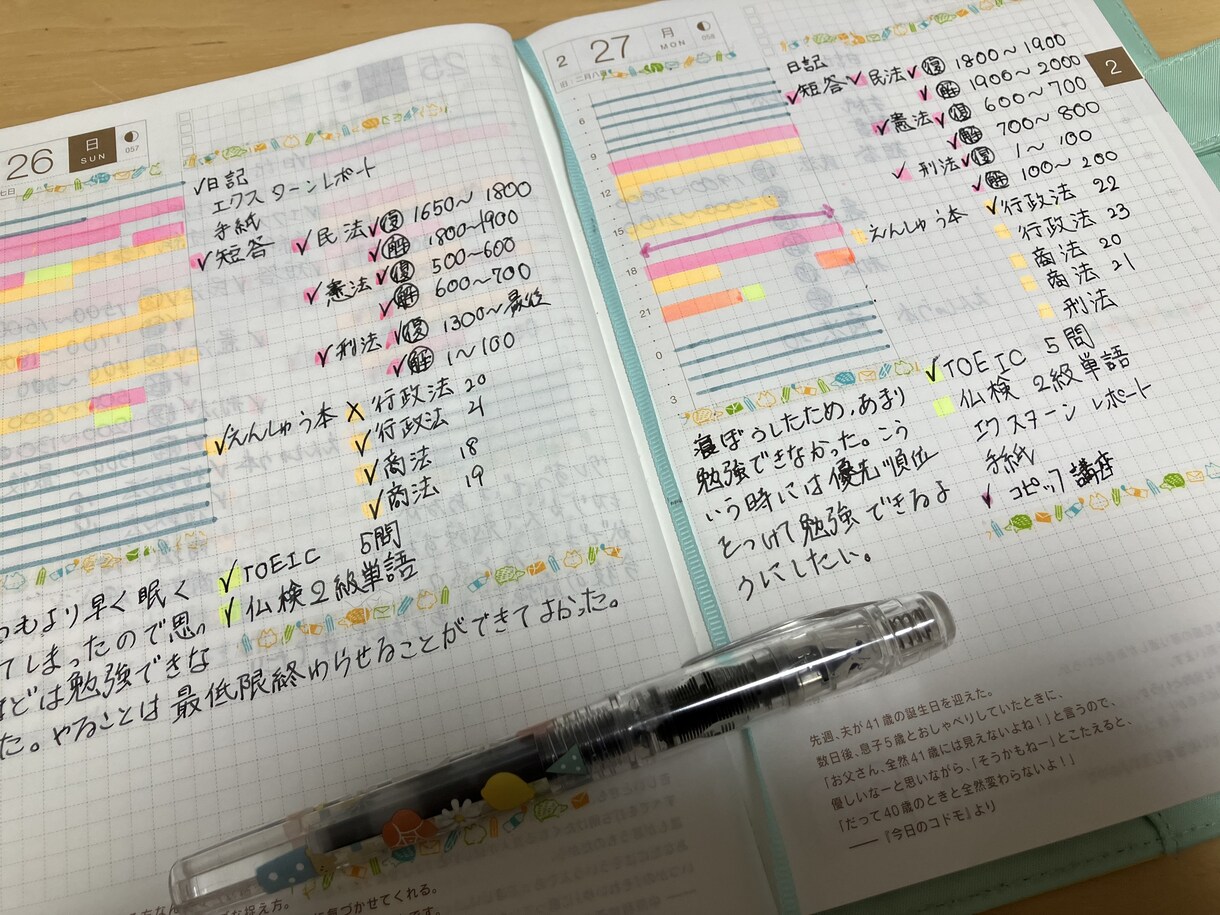 26
日
SUN
057
七日
✓日記
エクスターンレポート
手紙
✓短答 ✓民法 ✓復 1650〜1800
✓解 1800〜1900
✓憲法 ✓復 500〜600
✓解 600〜700
✓刑法 ✓復 1300〜最後
✓解 1〜100
✓えんしゅう本 ×行政法 20
✓行政法 21
✓商法 18
✓商法 19
✓TOEIC 5問
✓仏検2級単語
つもより早く眠く
てしまったので思っ
などは勉強できな
た。やることは最低限終わらせることができてよかった。
な捉え方。
気づかせてくれる。
です。
2
27
月
MON
058
旧 二月八日
2
6
9
12
15
18
21
0
3
日記
✓短答 ✓民法 ✓復 1800〜1900
✓解 1900〜2000
✓憲法 ✓復 600〜700
✓解 700〜800
✓刑法 ✓復 1〜100
✓解 100〜200
えんしゅう本 ✓行政法 22
行政法 23
商法 20
商法 21
刑法
✓TOEIC 5問
仏検2級単語
エクスターンレポート
手紙
✓コピック講座
寝ぼうしたため、あまり
勉強できなかった。こう
いう時には優先順位
をつけて勉強できるよ
うにしたい。
先週、夫が41歳の誕生日を迎えた。
数日後、息子5歳とおしゃべりしていたときに、
「お父さん、全然41歳には見えないよね!」と言うので、
優しいなーと思いながら、「そうかもねー」とこたえると、
「だって40歳のときと全然変わらないよ!」
——『今日のコドモ』より